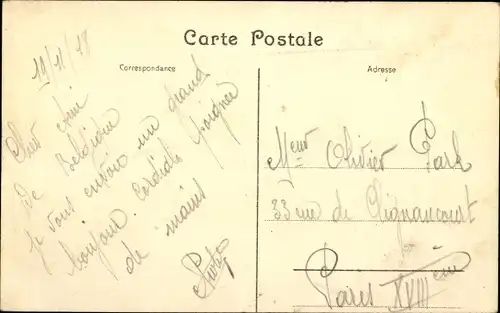 Carte Postale
Correspondance
19/11/18
Cher Ami
De Belgique
je vous envoie un grand
bonjour. Cordiale poignée
de mains
Adresse
Meur Olivier
33 rue de Clignancourt
Paris XVIIIème